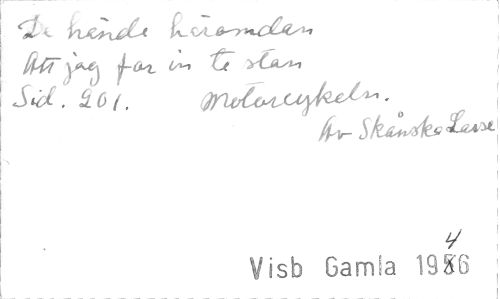 De hände häromdan
Att jag for in te stan
Sid. 201. Motorcykeln.
Av Skånska Lasse
Visb Gamla 1946